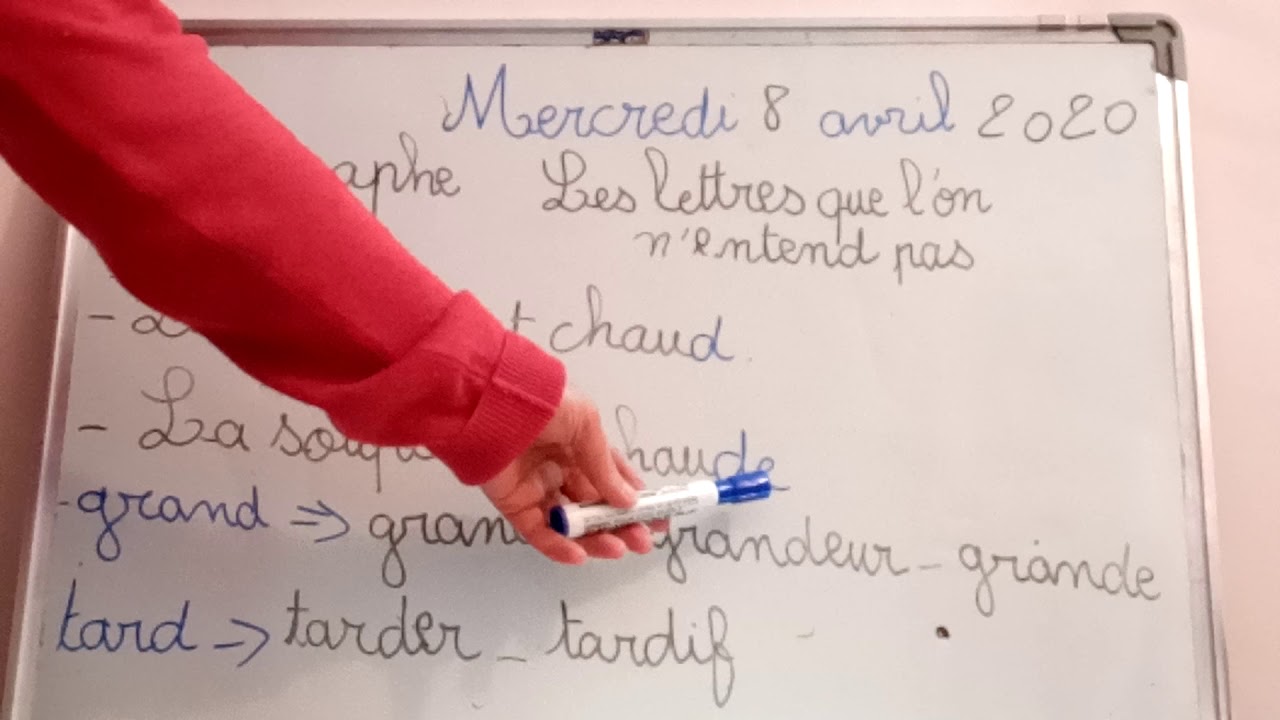 Mercredi 8 avril 2020
aphe Les lettres que l'on
n'entend pas
- t chaud.
- La haude
- grand => gran grandeur - grande
tard => tarder - tardif